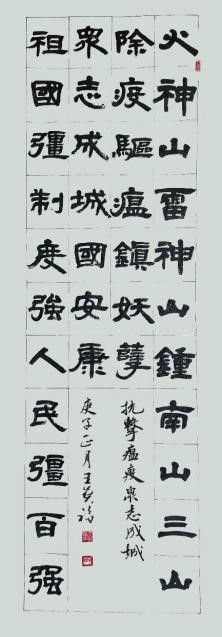 火神山雷神山鍾南山三山
除疫驅瘟鎮妖孽
衆志成城國安康
祖國彊制度強人民彊百强
抗擊瘟疫衆志成城
庚子正月王